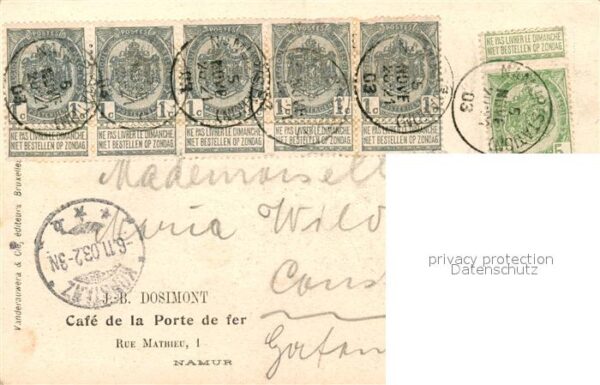 POSTES POSTES POSTES POSTES POSTES
1c 1c 1c 1c 1c
NE PAS LIVRER LE DIMANCHE NE PAS LIVRER LE DIMANCHE NE PAS LIVRER LE DIMANCHE NE PAS LIVRER LE DIMANCHE NE PAS LIVRER LE DIMANCHE
NIET BESTELLEN OP ZONDAG NIET BESTELLEN OP ZONDAG NIET BESTELLEN OP ZONDAG NIET BESTELLEN OP ZONDAG NIET BESTELLEN OP ZONDAG
NE PAS LIVRER LE DIMANCHE
NIET BESTELLEN OP ZONDAG
5
NOVE
03
Mademoisell
Maria Wild
Cons
privacy protection
Datenschutz
KONSTANZ
-6.11.03.2-3N
J.-B. DOSIMONT
Café de la Porte de fer
RUE MATHIEU, 1
NAMUR
Vanderauwera & Cie, éditeurs Bruxelles